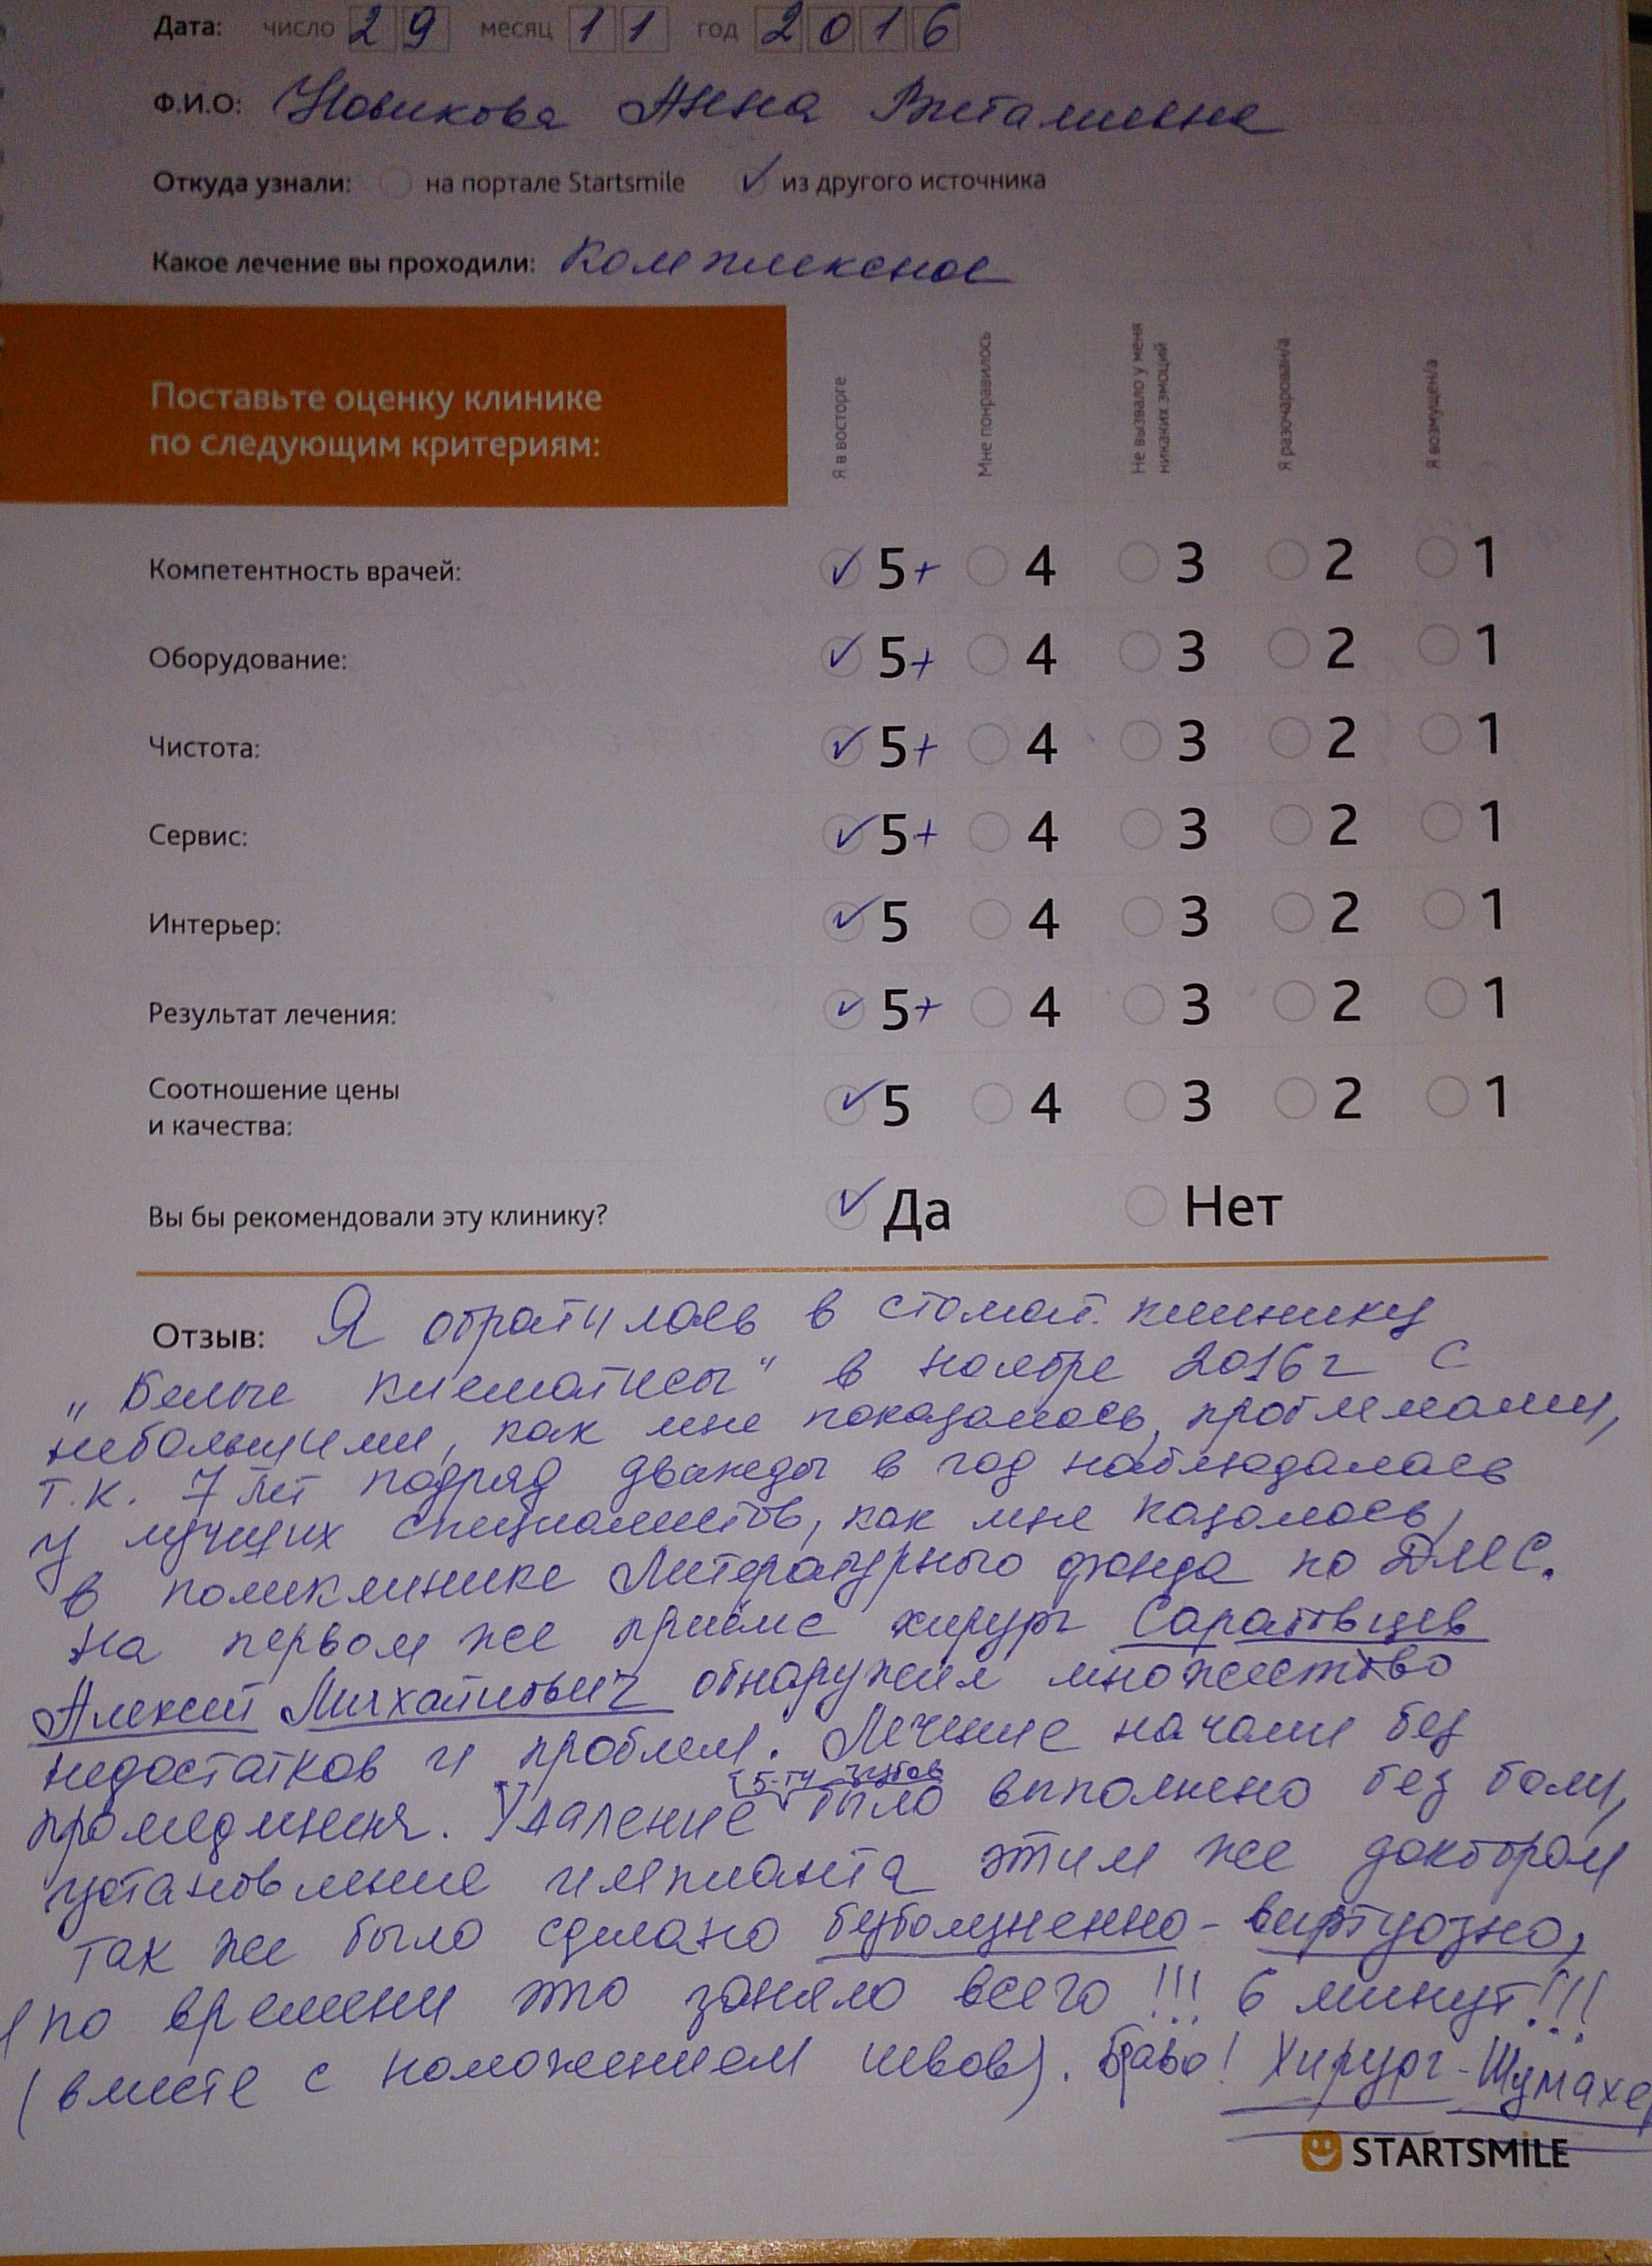 Дата: число 29 месяц 11 год 2016
Ф.И.О: Новикова Анна Витальевна
Откуда узнали: на портале Startsmile ✓ из другого источника
Какое лечение вы проходили: Комплексное
Поставьте оценку клинике
по следующим критериям:
Я в восторге
Мне понравилось
Не вызвало у меня
никаких эмоций
Я разочарован/а
Я возмущен/а
Компетентность врачей: ✓ 5+ 4 3 2 1
Оборудование: ✓ 5+ 4 3 2 1
Чистота: ✓ 5+ 4 3 2 1
Сервис: ✓ 5+ 4 3 2 1
Интерьер: ✓ 5 4 3 2 1
Результат лечения: ✓ 5+ 4 3 2 1
Соотношение цены
и качества: ✓ 5 4 3 2 1
Вы бы рекомендовали эту клинику? ✓ Да Нет
Отзыв: Я обратилась в стомат. клинику
„Белые клематисы" в ноябре 2016 г с
небольшими, как мне показалось, проблемами,
т.к. 7 лет подряд дважды в год наблюдалась
у лучших специалистов, как мне казалось,
в поликлинике Литературного фонда по ДМС.
На первом же приёме хирург Саратовцев
Алексей Михайлович обнаружил множество
недостатков и проблем. Лечение начали без
промедления. Удаление (5-ти зубов) было выполнено без боли,
установление импланта этим же доктором
так же было сделано безболезненно - виртуозно,
и по времени это заняло всего !!! 6 минут!!!
(вместе с наложением швов). Браво! Хирург - Шумахер
STARTSMILE